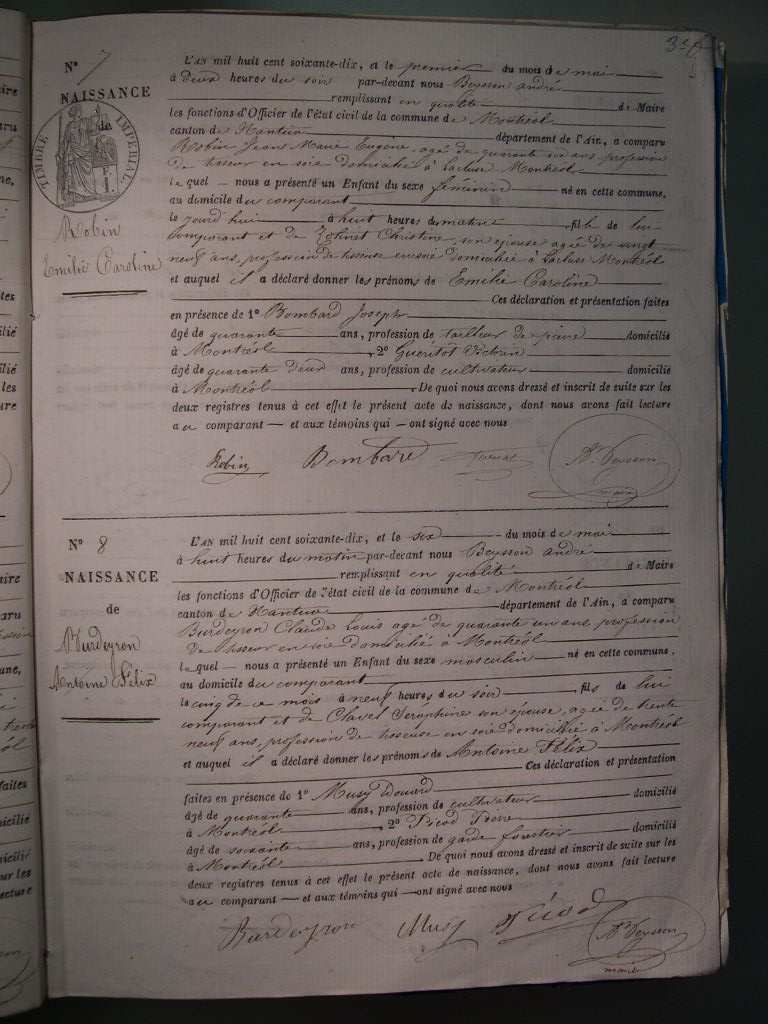 N° 7
NAISSANCE
de
TIMBRE IMPÉRIAL
Robin
Emilie Caroline
L'AN mil huit cent soixante-dix, et le premier du mois de mai
à deux heures du soir par-devant nous Beysson andré
remplissant en qualité de Maire
les fonctions d'Officier de l'état civil de la commune de Montréal
canton de Nantua département de l'Ain, a comparu
Robin Jean Marie Eugène, agé de quarante six ans, profession
de tisseur en soie domicilié à Lacluse Montréal
lequel nous a présenté un Enfant du sexe féminin né en cette commune,
au domicile du comparant
le jourd'hui à huit heures du matin fille de lui
comparant et de Christine, son épouse agée de vingt
neuf ans, profession de tisseuse en soie domiciliée à Lacluse Montréal
et auquel il a déclaré donner les prénoms de Emilie Caroline
Ces déclaration et présentation faites
en présence de 1° Bombard Joseph
âgé de quarante ans, profession de tailleur de pierre domicilié
à Montréal, 2° Victorin
âgé de quarante deux ans, profession de cultivateur domicilié
à Montréal. De quoi nous avons dressé et inscrit de suite sur les
deux registres tenus à cet effet le présent acte de naissance, dont nous avons fait lecture
au comparant et aux témoins qui ont signé avec nous
Robin Bombard An Beysson
maire
N° 8
NAISSANCE
de
Burdeyron
Antoine Félix
L'AN mil huit cent soixante-dix, et le six du mois de mai
à huit heures du matin par-devant nous Beysson andré
remplissant en qualité de Maire
les fonctions d'Officier de l'état civil de la commune de Montréal
canton de Nantua département de l'Ain, a comparu
Burdeyron Claude Louis agé de quarante un ans, profession
de tisseur en soie domicilié à Montréal
lequel nous a présenté un Enfant du sexe masculin né en cette commune,
au domicile du comparant
le cinq de ce mois à neuf heures du soir fils de lui
comparant et de Clavel Séraphine son épouse, agée de trente
neuf ans, profession de tisseuse en soie domiciliée à Montréal
et auquel il a déclaré donner les prénoms de Antoine Félix
Ces déclaration et présentation
faites en présence de 1° Musy Edouard
âgé de quarante ans, profession de cultivateur domicilié
à Montréal, 2° Picod
âgé de soixante ans, profession de garde forestier domicilié
à Montréal. De quoi nous avons dressé et inscrit de suite sur les
deux registres tenus à cet effet le présent acte de naissance, dont nous avons fait lecture
au comparant et aux témoins qui ont signé avec nous
Burdeyron Musy Picod An Beysson
maire